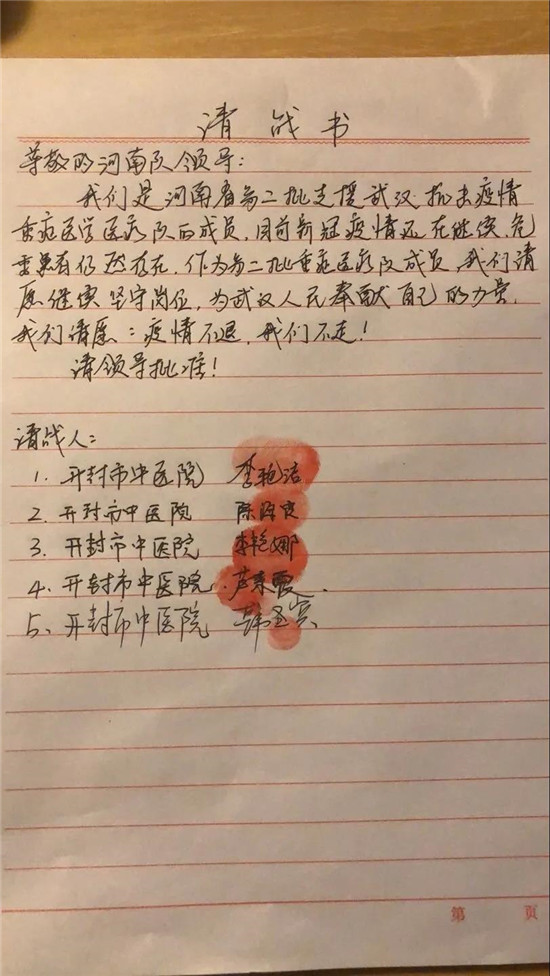 请战书
尊敬的河南队领导：
我们是河南省第二批支援武汉抗击疫情
重症医学医疗队的成员，目前新冠疫情还在继续，危
重患者仍然存在，作为第二批重症医疗队成员，我们请
愿继续坚守岗位，为武汉人民奉献自己的力量，
我们请愿：疫情不退，我们不走！
请领导批准！
请战人：
1. 开封市中医院 李艳洁
2. 开封市中医院 陈
3. 开封市中医院 李艳娜
4. 开封市中医院
5、开封市中医院 韩
第 页